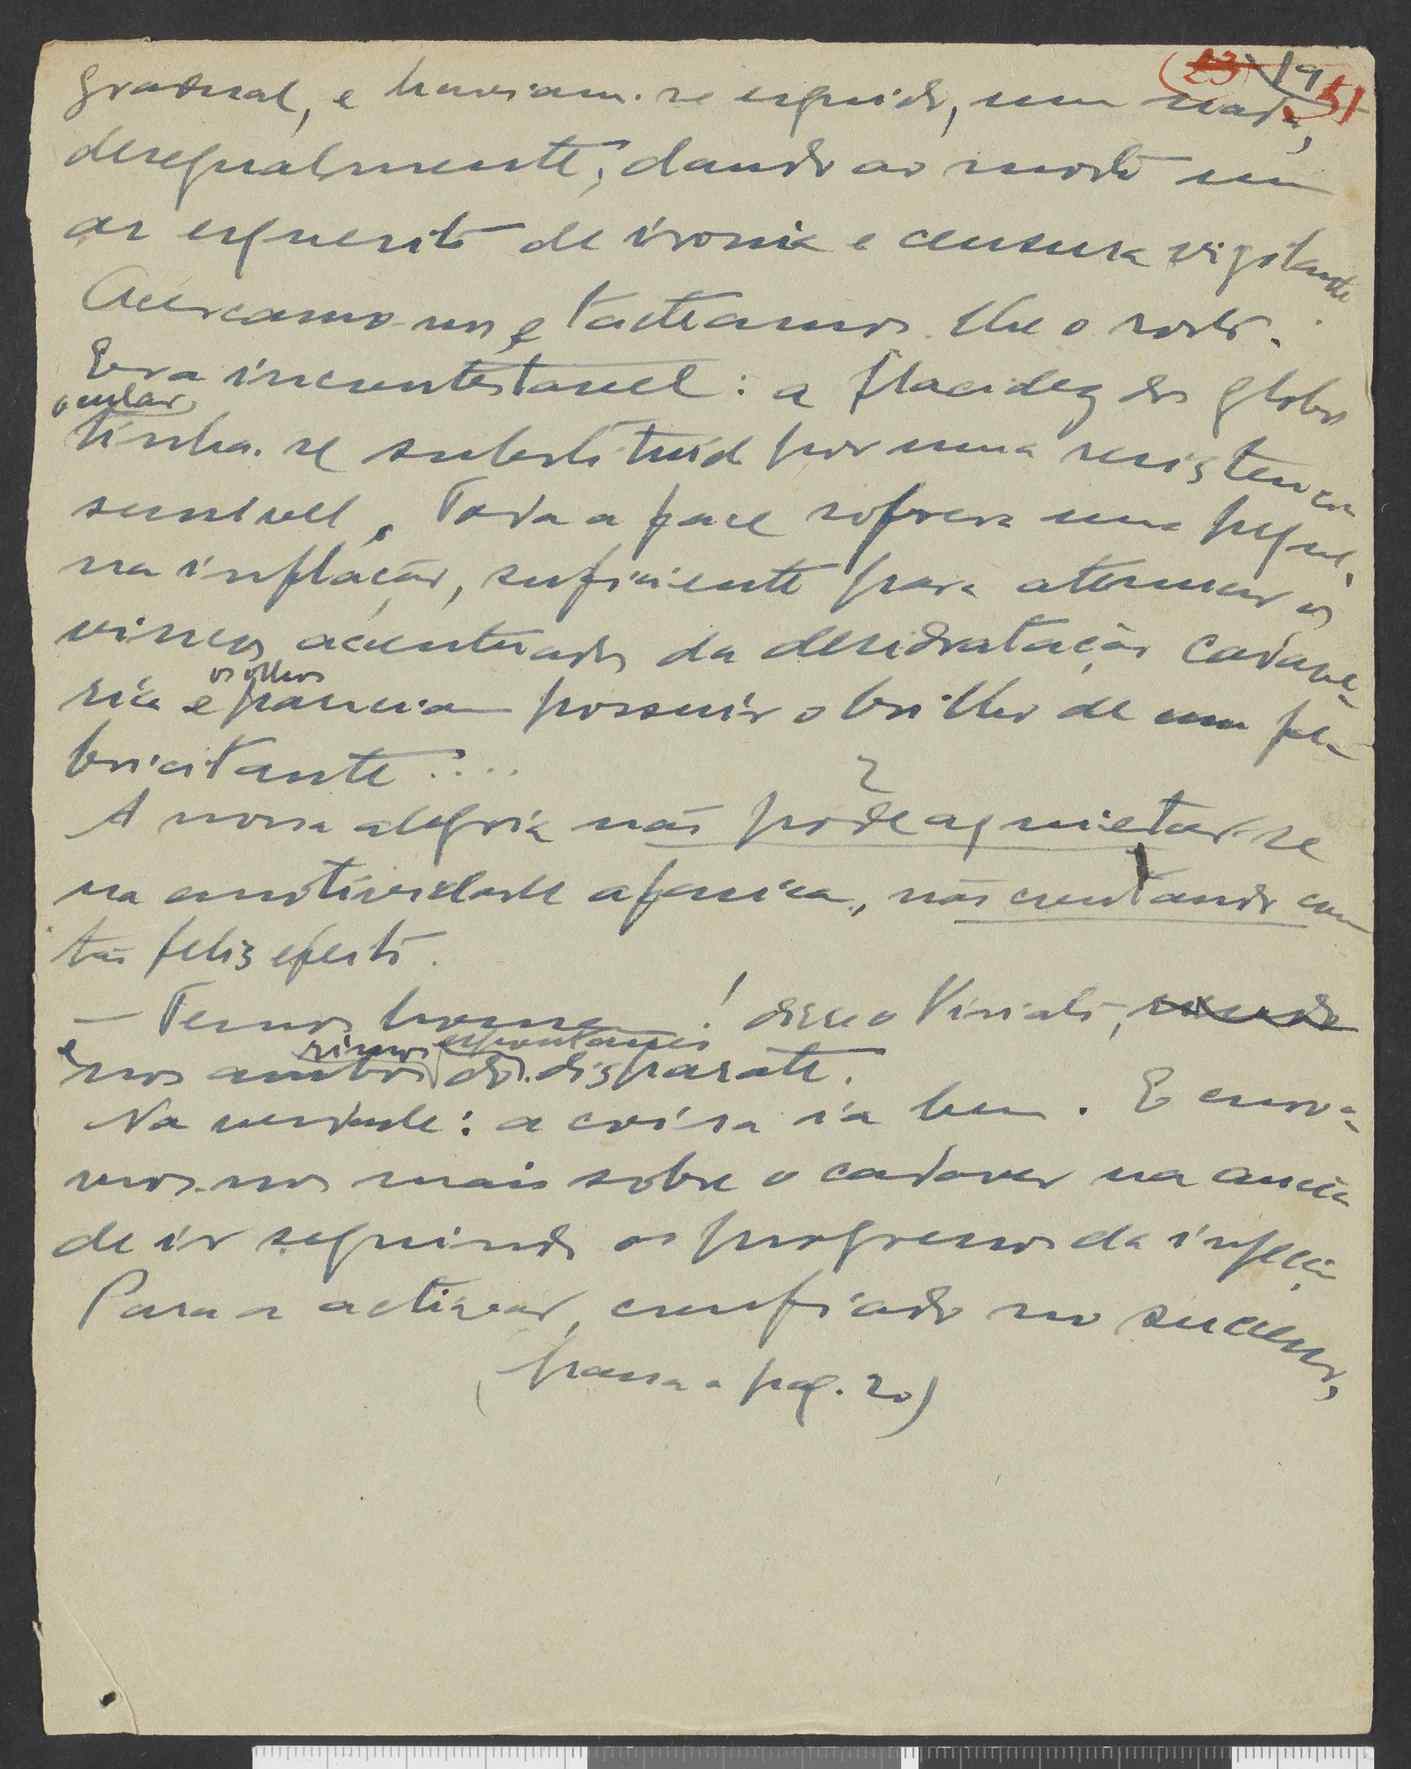 23 19 51
gradual, e haviam-se erguido, um nada,
desegualmente, dando ao morto um
ar esquesito de ironia e censura vigilante.
Acercamo-nos e tacteamos-lhe o rosto.
Era incontestavel: a flacidez dos globos
oculares
tinha-se substituido por uma resistencia
sensivel. Toda a face sofrera uma peque-
na inflação, suficiente para atenuar os
vincos acentuados da desidratação cadavé-
os olhos
rica e pareciam possuir o brilho de um fe-
bricitante....
A nossa alegria não pode aquietar-se
na emotividade afonica, não contando com
tão feliz efeito.
— Temos homem! disse o Visiali,
rimos espontaneos
e nos ambos do disparate.
Na verdade: a coisa ia bem. E curva-
mos-nos mais sobre o cadaver na ancia
de ir seguindo os progressos da infeção
Para a activar, confiado no sucesso,
(passa a pag. 20)